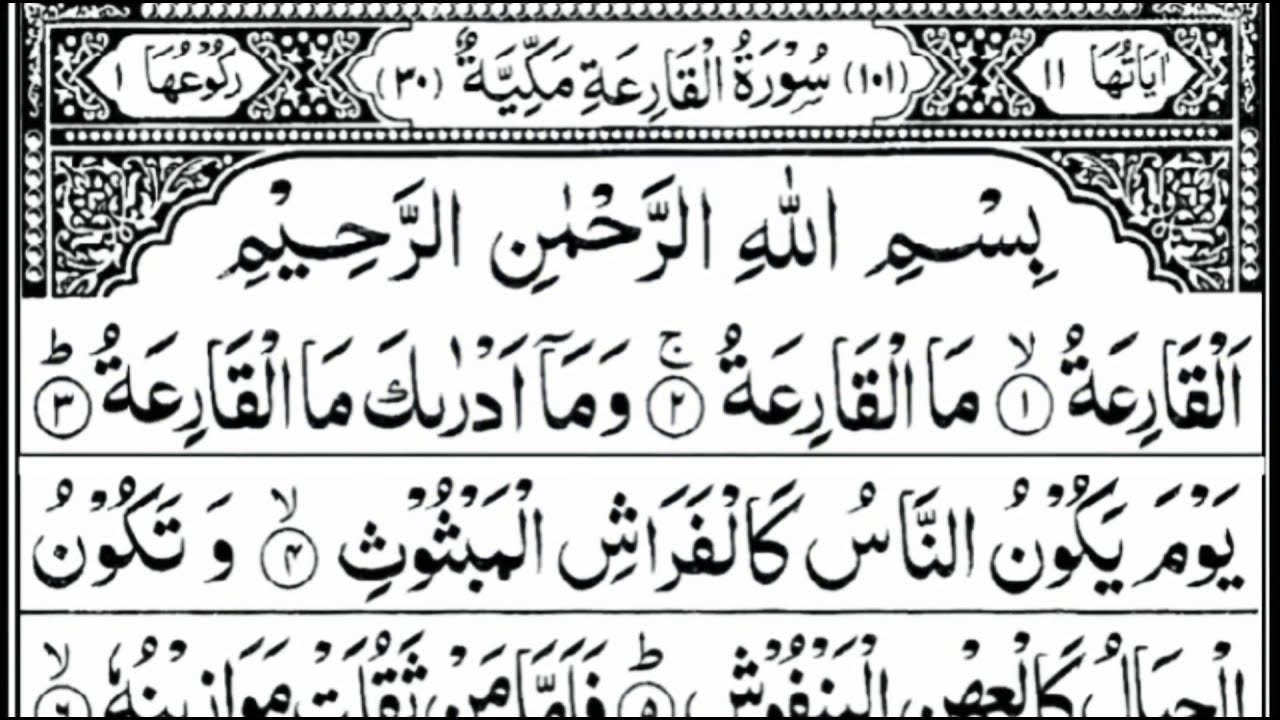 اٰيَاتُهَا ١١ (١٠١) سُوْرَةُ الْقَارِعَةِ مَكِّيَّةٌ (٣٠) رُكُوْعُهَا ١
بِسْمِ اللّٰهِ الرَّحْمٰنِ الرَّحِيْمِ
اَلْقَارِعَةُ ۙ‏ ﴿۱﴾ مَا الْقَارِعَةُ ۚ‏ ﴿۲﴾ وَمَاۤ اَدْرٰىكَ مَا الْقَارِعَةُ ؕ‏ ﴿۳﴾
يَوْمَ يَكُوْنُ النَّاسُ كَالْفَرَاشِ الْمَبْثُوْثِ ۙ‏ ﴿۴﴾ وَ تَكُوْنُ
الْجِبَالُ كَالْعِهْنِ الْمَنْفُوْشِ ؕ‏ ﴿۵﴾ فَاَمَّا مَنْ ثَقُلَتْ مَوَازِيْنُهٗ ۙ‏ ﴿۶﴾